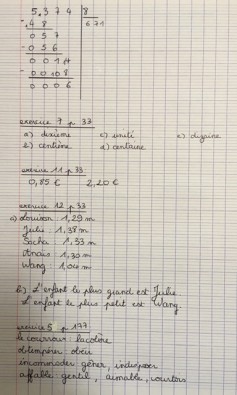 5,374 | 8
- 48 | 671
0 5 7
- 0 5 6
0 0 1 4
- 0 0 1 0 8
0 0 0 6
exercice 7 p 33
a) dixième c) unité e) dizaine
b) centième d) centaine
exercice 11 p 33
0,85 € 2,20 €
exercice 12 p 33
a) Louison : 1,29 m
Julie : 1,38 m
Sacha : 1,33 m
Anaïs : 1,30 m
Wang : 1,04 m
b) L'enfant le plus grand est Julie
L'enfant le plus petit est Wang.
exercice 5 p 177
le courroux : la colère
obtempérer obéir
incommoder gêner, indisposer
affable gentil, aimable, courtois